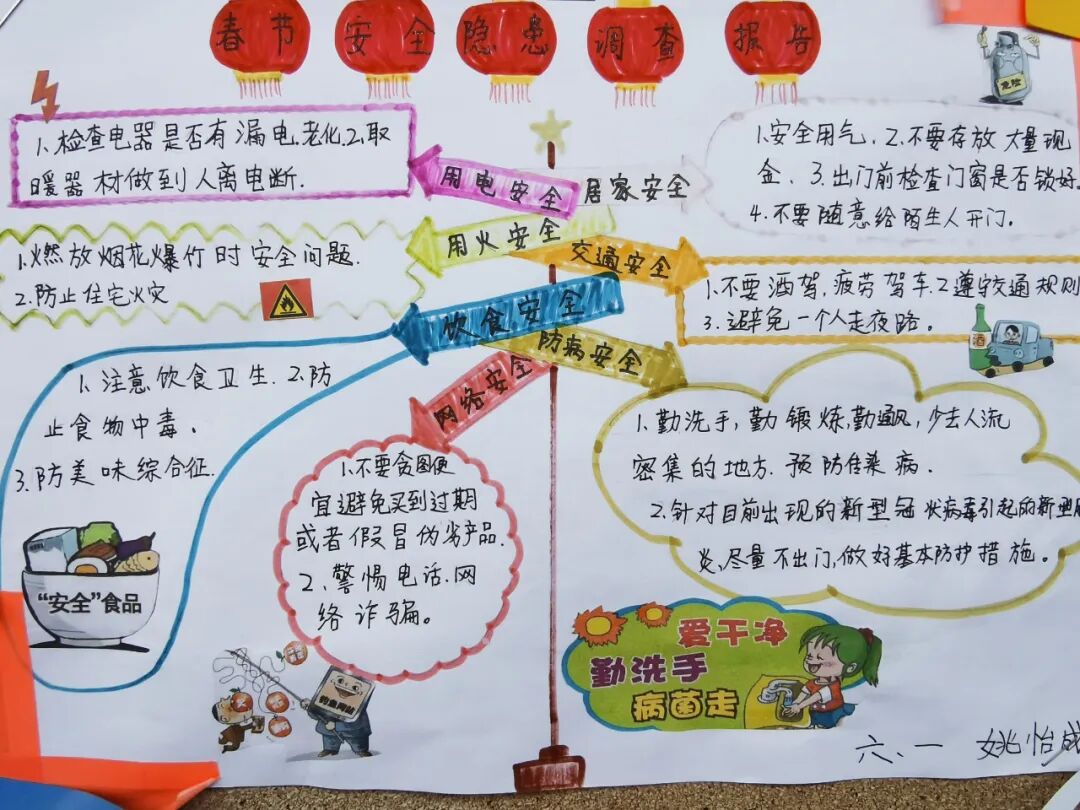 春节安全隐患调查报告
危险
1.检查电器是否有漏电.老化.2.取
暖器材做到人离电断.
用电安全
居家安全
1.安全用气、2.不要存放大量现
金、3.出门前检查门窗是否锁好.
4.不要随意给陌生人开门。
用火安全
1.燃放烟花爆竹时安全问题.
2.防止住宅火灾
交通安全
1.不要酒驾,疲劳驾车.2.遵守交通规则
3.避免一个人走夜路。
酒
饮食安全
1.注意饮食卫生.2.防
止食物中毒.
3.防美味综合征.
“安全”食品
防病安全
1.勤洗手,勤锻炼,勤通风,少去人流
密集的地方.预防传染病.
2.针对目前出现的新型冠状病毒引起的新型
炎,尽量不出门,做好基本防护措施。
网络安全
1.不要贪图便
宜避免买到过期
或者假冒伪劣产品.
2.警惕电话.网
络诈骗。
钓鱼网站
爱干净
勤洗手
病菌走
六、一 姚怡